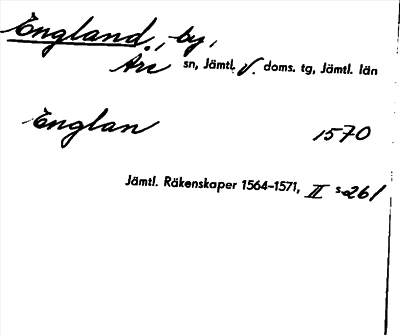 England, by,
Åre sn, Jämtl. v. doms. tg, Jämtl. län
Englan 1570
Jämtl. Räkenskaper 1564-1571, II s. 261